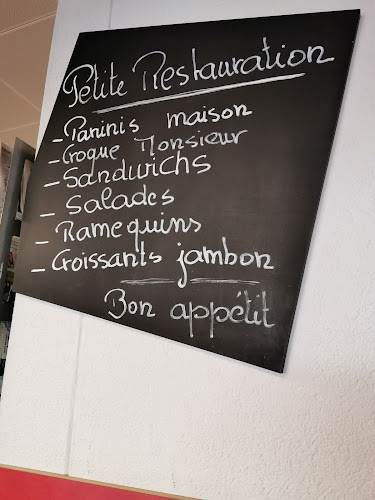 Petite Restauration
- Paninis maison
- Croque Monsieur
- Sandwichs
- Salades
- Ramequins
- Croissants jambon
Bon appétit